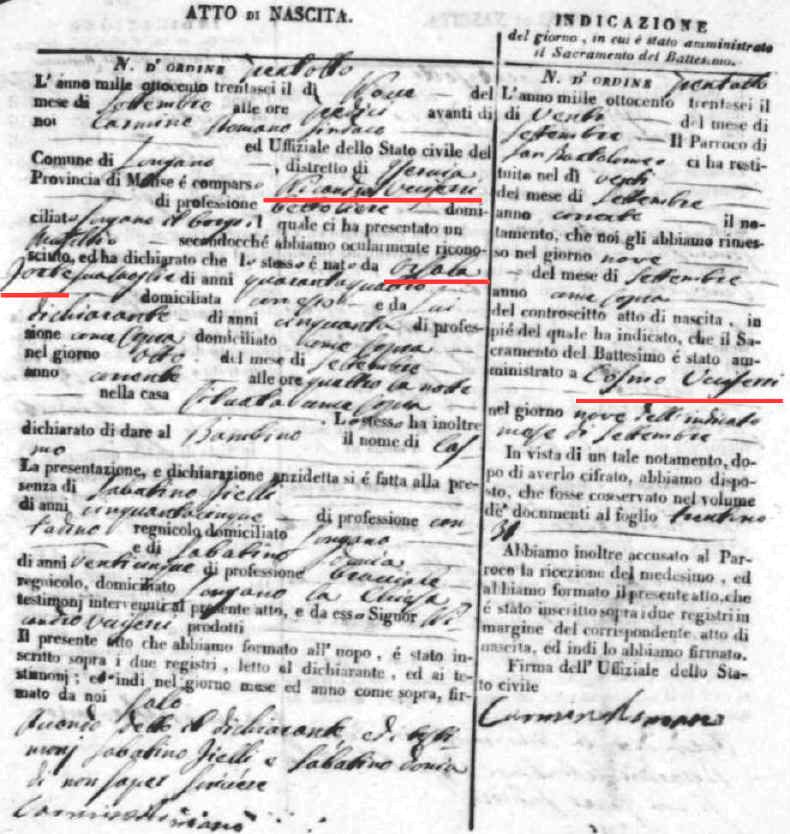 ATTO DI NASCITA.
N. D'ORDINE trentotto
L'anno mille ottocento trentasei il dì Nove del
mese di Settembre alle ore avanti di
noi Carmine Romano Sindaco
ed Uffiziale dello Stato civile del
Comune di Longano, distretto di Isernia
Provincia di Molise é comparso
di professione domi-
ciliato Longano il quale ci ha presentato un
secondocché abbiamo ocularmente ricono-
sciuto, ed ha dichiarato che lo stesso é nato da Orsola
di anni quarantaquattro
domiciliata e da Lui
dichiarante di anni cinquanta di profes-
sione come sopra domiciliato come sopra
nel giorno otto del mese di Settembre
anno corrente alle ore quattro la notte
nella casa come sopra
Lo stesso ha inoltre
dichiarato di dare al Bambino il nome di Cos-
mo
La presentazione, e dichiarazione anzidetta si é fatta alla pre-
senza di Sabatino Jielli
di anni cinquantacinque di professione con-
tadino regnicolo domiciliato Longano
e di Sabatino Donia
di anni venticinque di professione bracciale
regnicolo, domiciliato Longano la Chiesa
testimonj intervenuti al presente atto, e da esso Signor
prodotti
Il presente atto che abbiamo formato all'uopo, é stato in-
scritto sopra i due registri, letto al dichiarante, ed ai te-
stimonj; ed indi nel giorno mese ed anno come sopra, fir-
mato da noi Solo
Avendo detto il dichiarante, e di testi-
monj Sabatino Jielli e Sabatino Donia
di non saper scrivere
Carmine Romano
INDICAZIONE
del giorno, in cui é stato amministrato
il Sacramento del Battesimo.
N. D'ORDINE trentotto
L'anno mille ottocento trentasei il
di Venti del mese di
Settembre Il Parroco di
San Bartolomeo ci ha resti-
tuito nel dì venti
del mese di Settembre
anno corrente il no-
tamento, che noi gli abbiamo rimes-
so nel giorno nove
del mese di Settembre
anno come sopra
del controscitto atto di nascita, in
pié del quale ha indicato, che il Sa-
cramento del Battesimo é stato am-
ministrato a Cosmo
nel giorno nove dell'indicato
mese di Settembre
In vista di un tale notamento, do-
po di averlo cifrato, abbiamo dispo-
sto, che fosse conservato nel volume
de' documenti al foglio
Abbiamo inoltre accusato al Par-
roco la ricezione del medesimo, ed
abbiamo formato il presente atto, che
é stato inscritto sopra i due registri in
margine del corrispondente atto di
nascita, ed indi lo abbiamo firmato.
Firma dell' Uffiziale dello Sta-
to civile
Carmine Romano